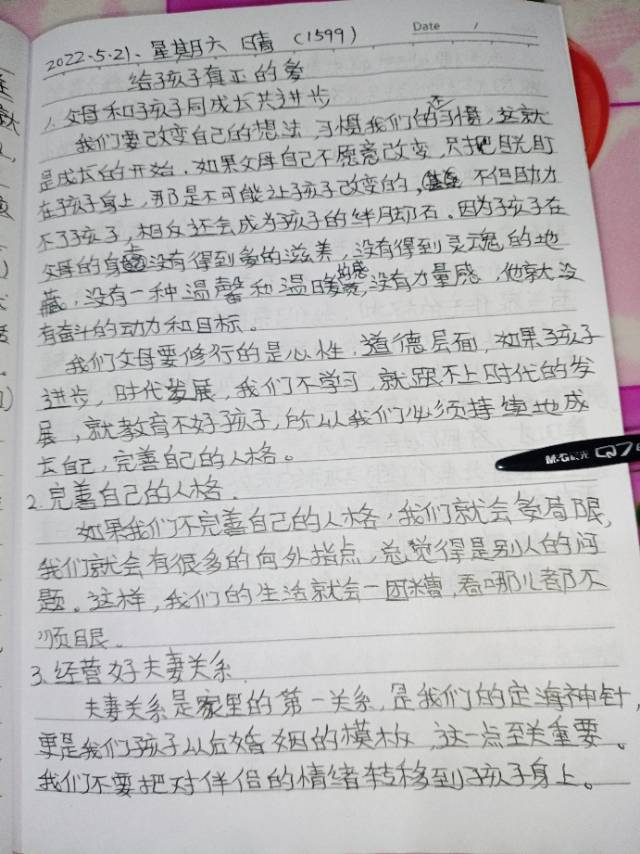 Date /
2022.5.21、星期六 晴 (1599)
给孩子真正的爱
1. 父母和孩子同成长共进步
我们要改变自己的想法、习惯我们的习惯,这就
是成长的开始。如果父母自己不愿意改变,只把目光盯
在孩子身上,那是不可能让孩子改变的,不但助力
不了孩子,相反还会成为孩子的绊脚石。因为孩子在
父母的身上没有得到爱的滋养,没有得到灵魂的地
藏,没有一种温馨和温暖的感,没有力量感,他就没
有奋斗的动力和目标。
我们父母要修行的是心性,道德层面,如果孩子
进步,时代发展,我们不学习,就跟不上时代的发
展,就教育不好孩子,所以我们必须持续地成
长自己,完善自己的人格。
2. 完善自己的人格.
如果我们不完善自己的人格,我们就会局限,
我们就会有很多的向外指点,总觉得是别人的问
题。这样,我们的生活就会一团糟,看哪儿都不
顺眼。
3. 经营好夫妻关系.
夫妻关系是家里的第一关系,是我们的定海神针,
更是我们孩子以后婚姻的模板,这一点至关重要。
我们不要把对伴侣的情绪转移到孩子身上。
M&G晨光 Q7